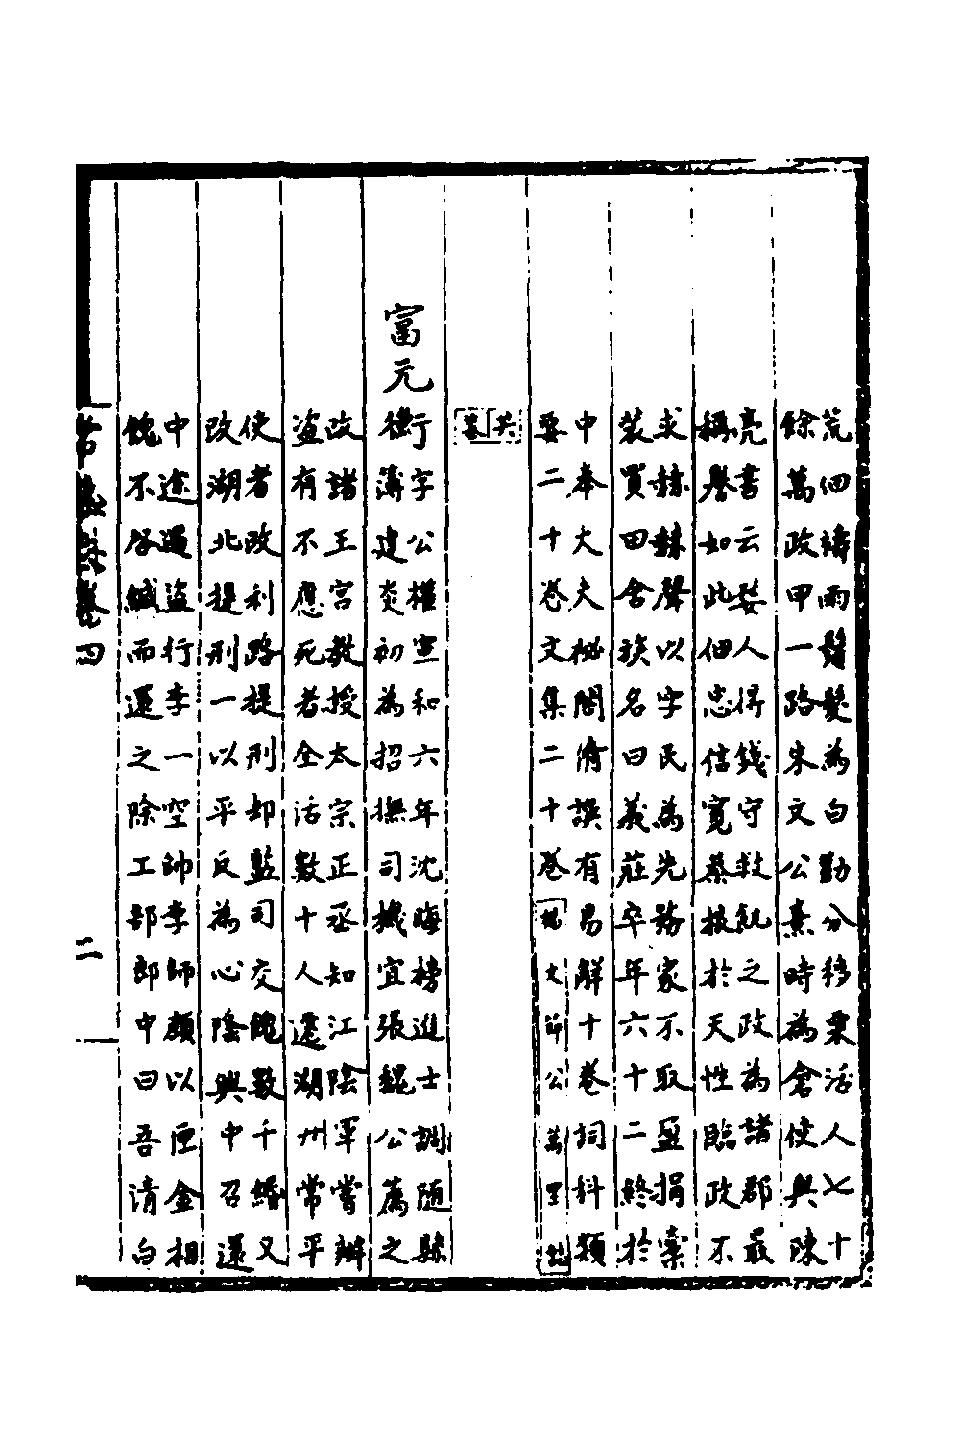 荒田禱雨鬚髮為白勤分移粟活人七十
餘萬政甲一路朱文公熹時為倉使與陳
亮書云婺人得錢守救飢之政為諸郡最
稱譽如此佃忠信寬蔡根於天性臨政不
求赫赫聲以字民為先務家不取盈捐橐
裝買田舍族名曰義莊卒年六十二終於
中奉大夫秘閣脩譔有易解十卷詞科類
要二十卷文集二十卷
富元衡字公權宣和六年沈晦榜進士調隨縣
簿建炎初為招撫司機宜張鯤公薦之
改諸王宮教授太宗正丞知江陰軍嘗辦
盜有不應死者全活數十人還湖州常平
使者改利路提刑却監司交餽數千緡又
改湖北提刑一以平反為心陰興中召還
中途遇盜行李一空帥李師顏以匣金相
餽不啓緘而還之除工部郎中曰吾清白
卷四
二